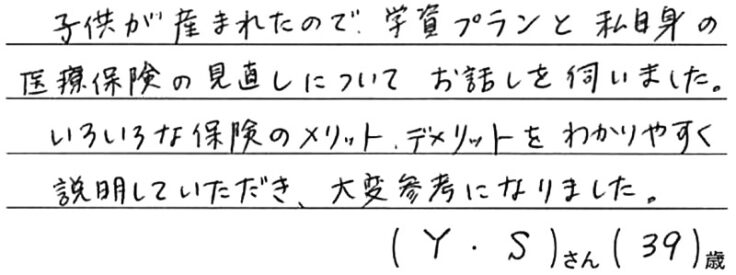 子供が産まれたので、学資プランと私自身の
医療保険の見直しについてお話しを伺いました。
いろいろな保険のメリット、デメリットをわかりやすく
説明していただき、大変参考になりました。
(Y・S)さん(39)歳